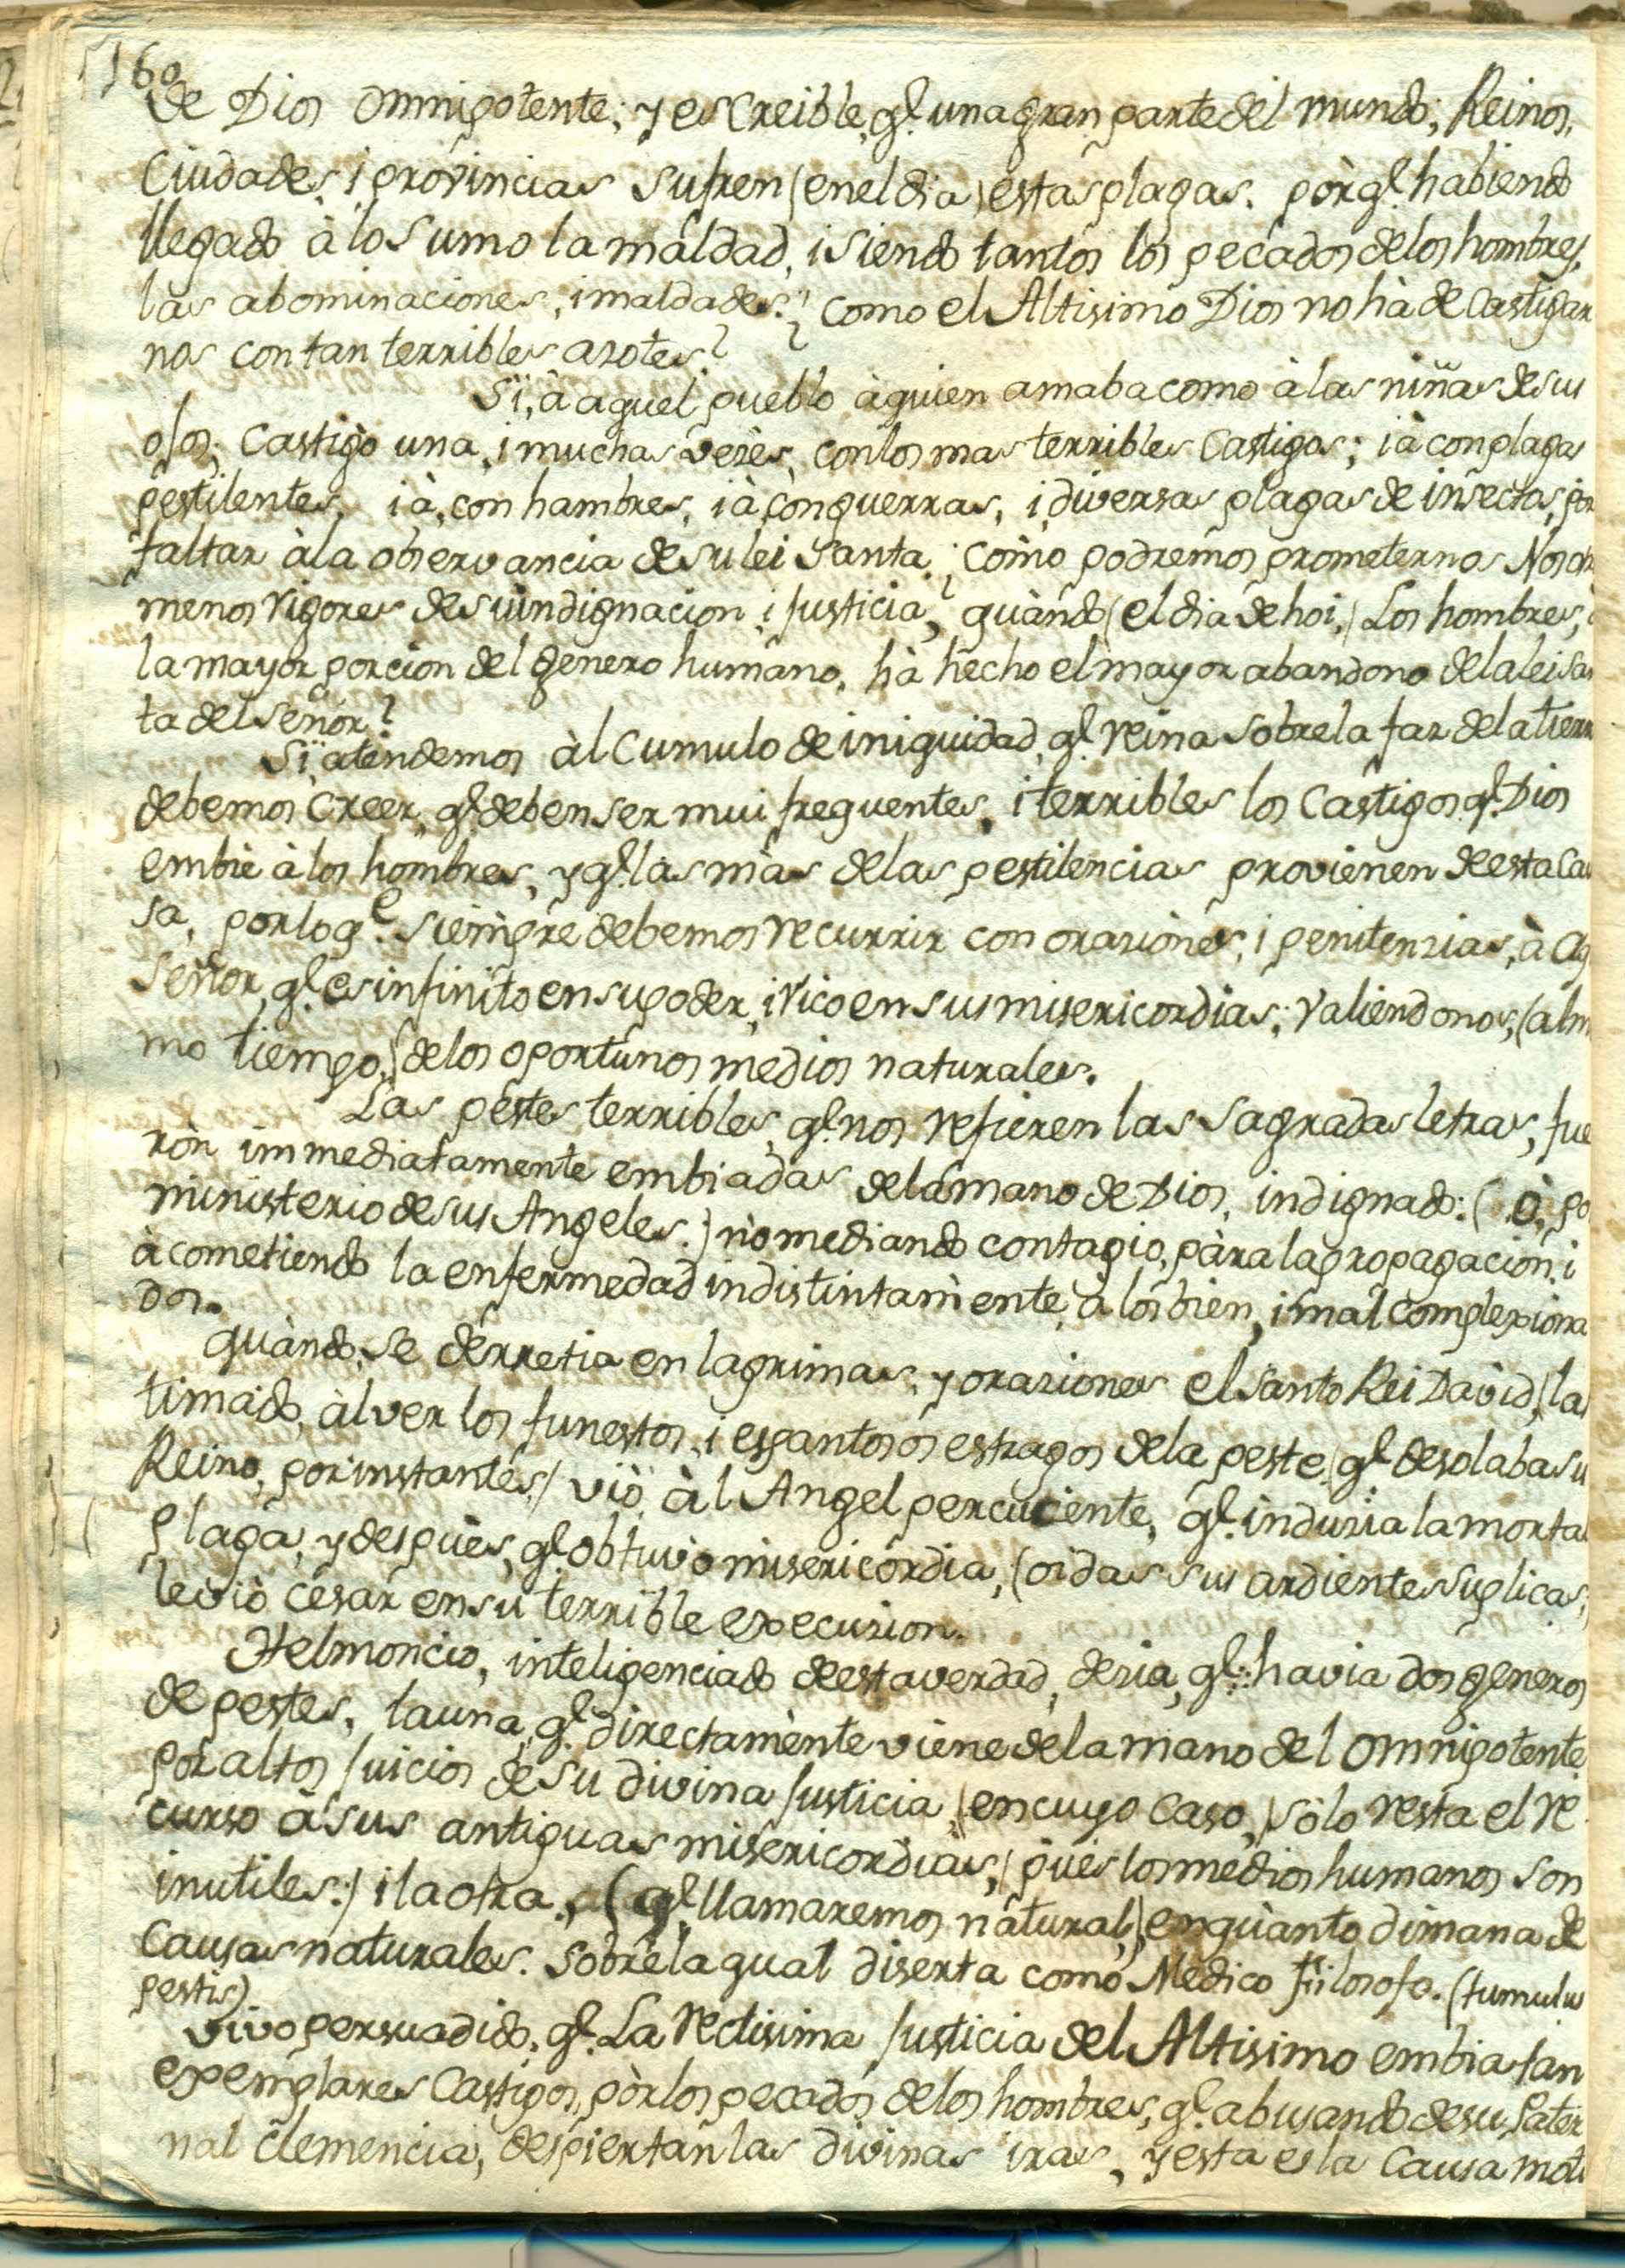 160
de Dios omnipotente; y es Creible, q.e una gran parte del mundo; Reinos,
Ciudades, i provincias Sufren (en el dia) estas plagas. pòr q.e habiendo
llegado à lo Sumo la maldad, i Siendo tantos los pecados de los hombres,
las abominaciones, i maldades: ¿ como el Altisimo Dios no hà de Castigar
nos con tan terribles azotes?
Si, à aquel pueblo à quien amaba como à las niñas de sus
ojos, Castigò una, i muchas vezes, con los mas terribles Castigos; ià con plagas
pestilentes, ià, con hambres, ià con guerras, i diversas plagas de insectos, por
faltar à la observancia de su lei Santa. ¿ Como podremos prometernos Nosotr
menos rigores de su indignacion i Justicia, quàndo (el dia de hoi,) Los hombres,
la mayor porcion del genero humano, hà hecho el mayor abandono de la lei San
ta del Señor?
Si atendemos àl Cumulo de iniquidad, q.e reina sobre la faz de la tierra
debemos Creer, q.e deben ser mui frequentes, i terribles los Castigos q.e Dios
embie à los hombres, y q.e las màs de las pestilencias provienen de esta Cau
sa, por lo q.e siempre debemos recurrir con oraziones, i penitenzias, à Aq
Señor, q.e es infinito en su poder, i rico en sus misericordias; Valiendonos, (al m
mo tiempo,) de los oportunos medios naturales.
Las pestes terribles, q.e nos refieren las Sagradas letras, fue
ròn immediatamente embiadas de la mano de Dios, indignado: (ò, po
ministerio de sus Angeles:) no mediando contagio, pàra la propagacion, i
àcometiendo la enfermedad indistintamente, à los bien, i mal complexiona
dos.
quàndo, se derretia en lagrimas, y oraziones el Santo Rei Davìd, (las
timado, àl ver los funestos, i espantosos estragos de la peste, q.e desolaba su
Reino, por instantes) viò àl Angel percuciente, q.e induzia la mortal
plaga, y despuès, q.e obtuvo misericordia, (oidas sus ardientes suplicas,
le viò cesar en su terrible execuzion.
Helmoncio, inteligenciado de esta verdad, dezia, q.e: havia dos generos
de pestes, la una, q.e directamente viene de la mano del Omnipotente
por altos Juicios de su divina Justicia, (en cuyo Caso,) sòlo resta el re
curso à sus antiguas misericordias, (pues los medios humanos son
inutiles:) i la otra, (q.e llamaremos natural,) en quànto dimana de
Causas naturales. sobre la qual diserta como Medico filosofo. (tumulus
pestis)
Vivo persuadido, q.e La rectisima Justicia del Altisimo embia tan
exemplares Castigos, pòr los pecados de los hombres, q.e abusando de su Pater
nal clemencia, despiertan las divinas iras, y esta es la Causa moti